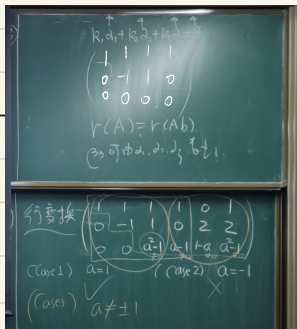 k₁α₁+k₂α₂+k₃α₃=β₃
1 1 1 1
0 -1 1 0
0 0 0 0
r(A)=r(Ab).
行变换 1 1 1 1 0 1
0 -1 1 0 2 2
0 0 a²-1 a-1 1-a a²-1
(Case1) a=1 (Case2) a=-1
✓ ×
(Case3) a≠±1